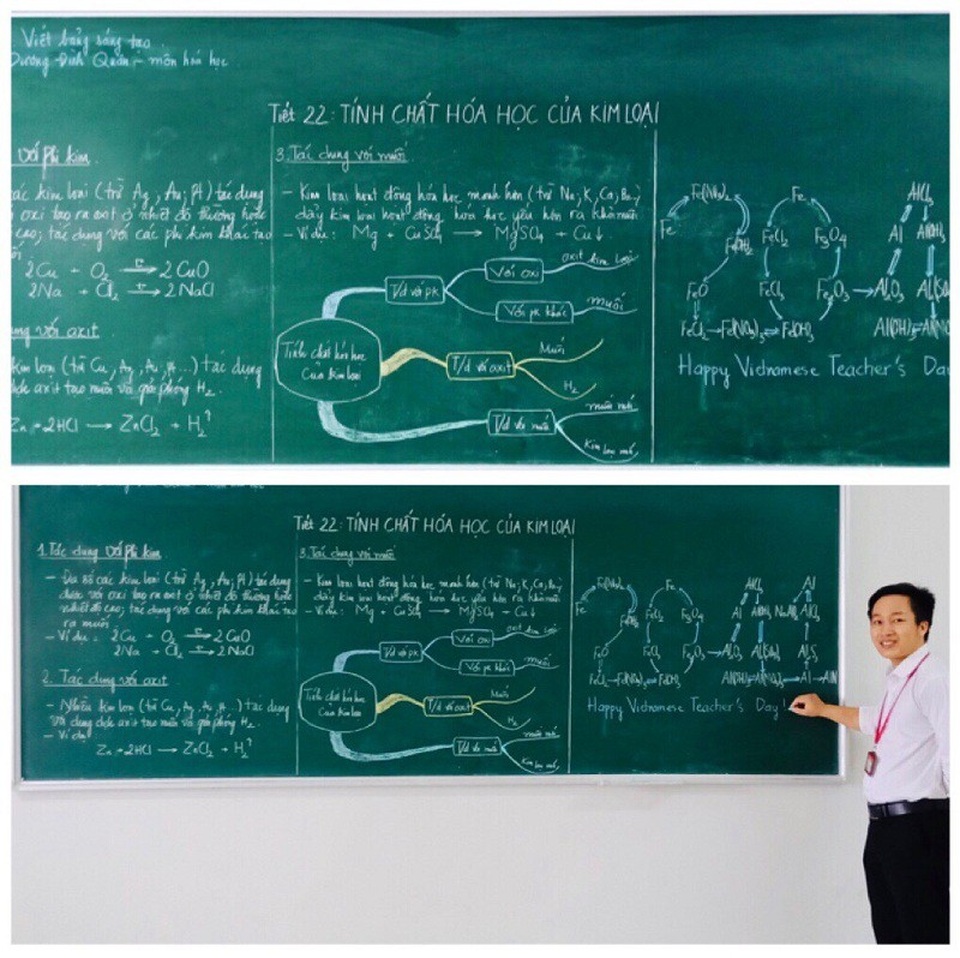 Viết bảng sáng tạo
Dương Đình Quân - môn hóa học
Tiết 22: TÍNH CHẤT HÓA HỌC CỦA KIM LOẠI
với phi kim.
các kim loại (trừ Ag, Au, Pt) tác dụng
oxi tạo ra oxit ở nhiệt độ thường hoặc
cao; tác dụng với các phi kim khác tạo
2Cu + O₂ → 2CuO
2Na + Cl₂ → 2NaCl
ụng với axit.
kim loại (trừ Cu, Ag, Au, Pt...) tác dụng
dịch axit tạo muối và giải phóng H₂.
Zn + 2HCl → ZnCl₂ + H₂↑
3. Tác dụng với muối
- Kim loại hoạt động hóa học mạnh hơn (trừ Na, K, Ca, Ba..)
đẩy kim loại hoạt động hóa học yếu hơn ra khỏi muối
- Ví dụ: Mg + CuSO₄ → MgSO₄ + Cu↓
Tính chất hóa học
Của kim loại
T/d với pk
Với oxi
oxit kim loại
Với pk khác
muối
T/d với axit
Muối
H₂
T/d với muối
muối mới
Kim loại mới
Fe
Fe(NO₃)₂
Fe(OH)₂
FeO
FeCl₂ → Fe(NO₃)₂ ⇌ Fe(OH)₂
Fe
FeCl₂ Fe₃O₄
FeCl₃ Fe₂O₃ → Al₂O₃
AlCl₃
Al Al(OH)₃
Happy Vidnamese Teacher's Da
Tiết 22: TÍNH CHẤT HÓA HỌC CỦA KIM LOẠI
1. Tác dụng với phi kim
- Đa số các kim loại (trừ Ag, Au, Pt) tác dụng
được với oxi tạo ra oxit ở nhiệt độ thường hoặc
nhiệt độ cao; tác dụng với các phi kim khác tạo
ra muối
- Ví dụ: 2Cu + O₂ → 2CuO
2Na + Cl₂ → 2NaCl
2. Tác dụng với axit
- Nhiều kim loại (trừ Cu, Ag, Au, Pt...) tác dụng
với dung dịch axit tạo muối và giải phóng H₂.
- Ví dụ
Zn + 2HCl → ZnCl₂ + H₂↑
3. Tác dụng với muối
- Kim loại hoạt động hóa học mạnh hơn (trừ Na, K, Ca, Ba..)
đẩy kim loại hoạt động hóa học yếu hơn ra khỏi muối
- Ví dụ: Mg + CuSO₄ → MgSO₄ + Cu↓
Tính chất hóa học
Của kim loại
T/d với pk
Với oxi
oxit kim loại
Với pk khác
muối
T/d với axit
Muối
H₂
T/d với muối
muối mới
Kim loại mới
Fe
FeO
Fe
FeCl₂ Fe₃O₄
FeCl₃ Fe₂O₃ → Al₂O₃
AlCl₃ Al
Happy Vidnamese Teacher's Day!